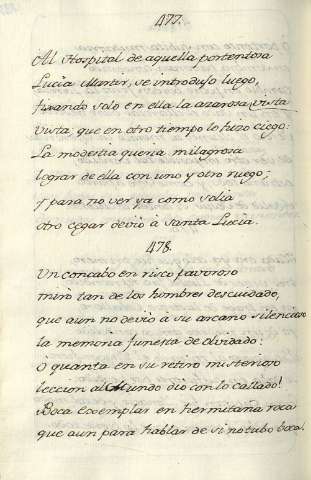 477.
Al Hospital de aquella portentosa
Lucia Martir, se introdujo luego,
fixando solo en ella la azarosa vista
vista, que en otro tiempo lo hizo ciego:
La modestia queria milagrosa
lograr de ella con uno y otro ruego;
y para no ver ya como solia
otro cegar deviò a Santa Lucia.
478.
Un concabo en risco pavoroso
mirò tan de los hombres descuidado,
que aun no deviò a su arcano silencioso
la memoria funesta de olvidado:
ò quanta en su retiro misterioso
leccion al Mundo diò con lo callado!
Boca exemplar en hermitana roca
que aun para hablar de si no tubo boca.